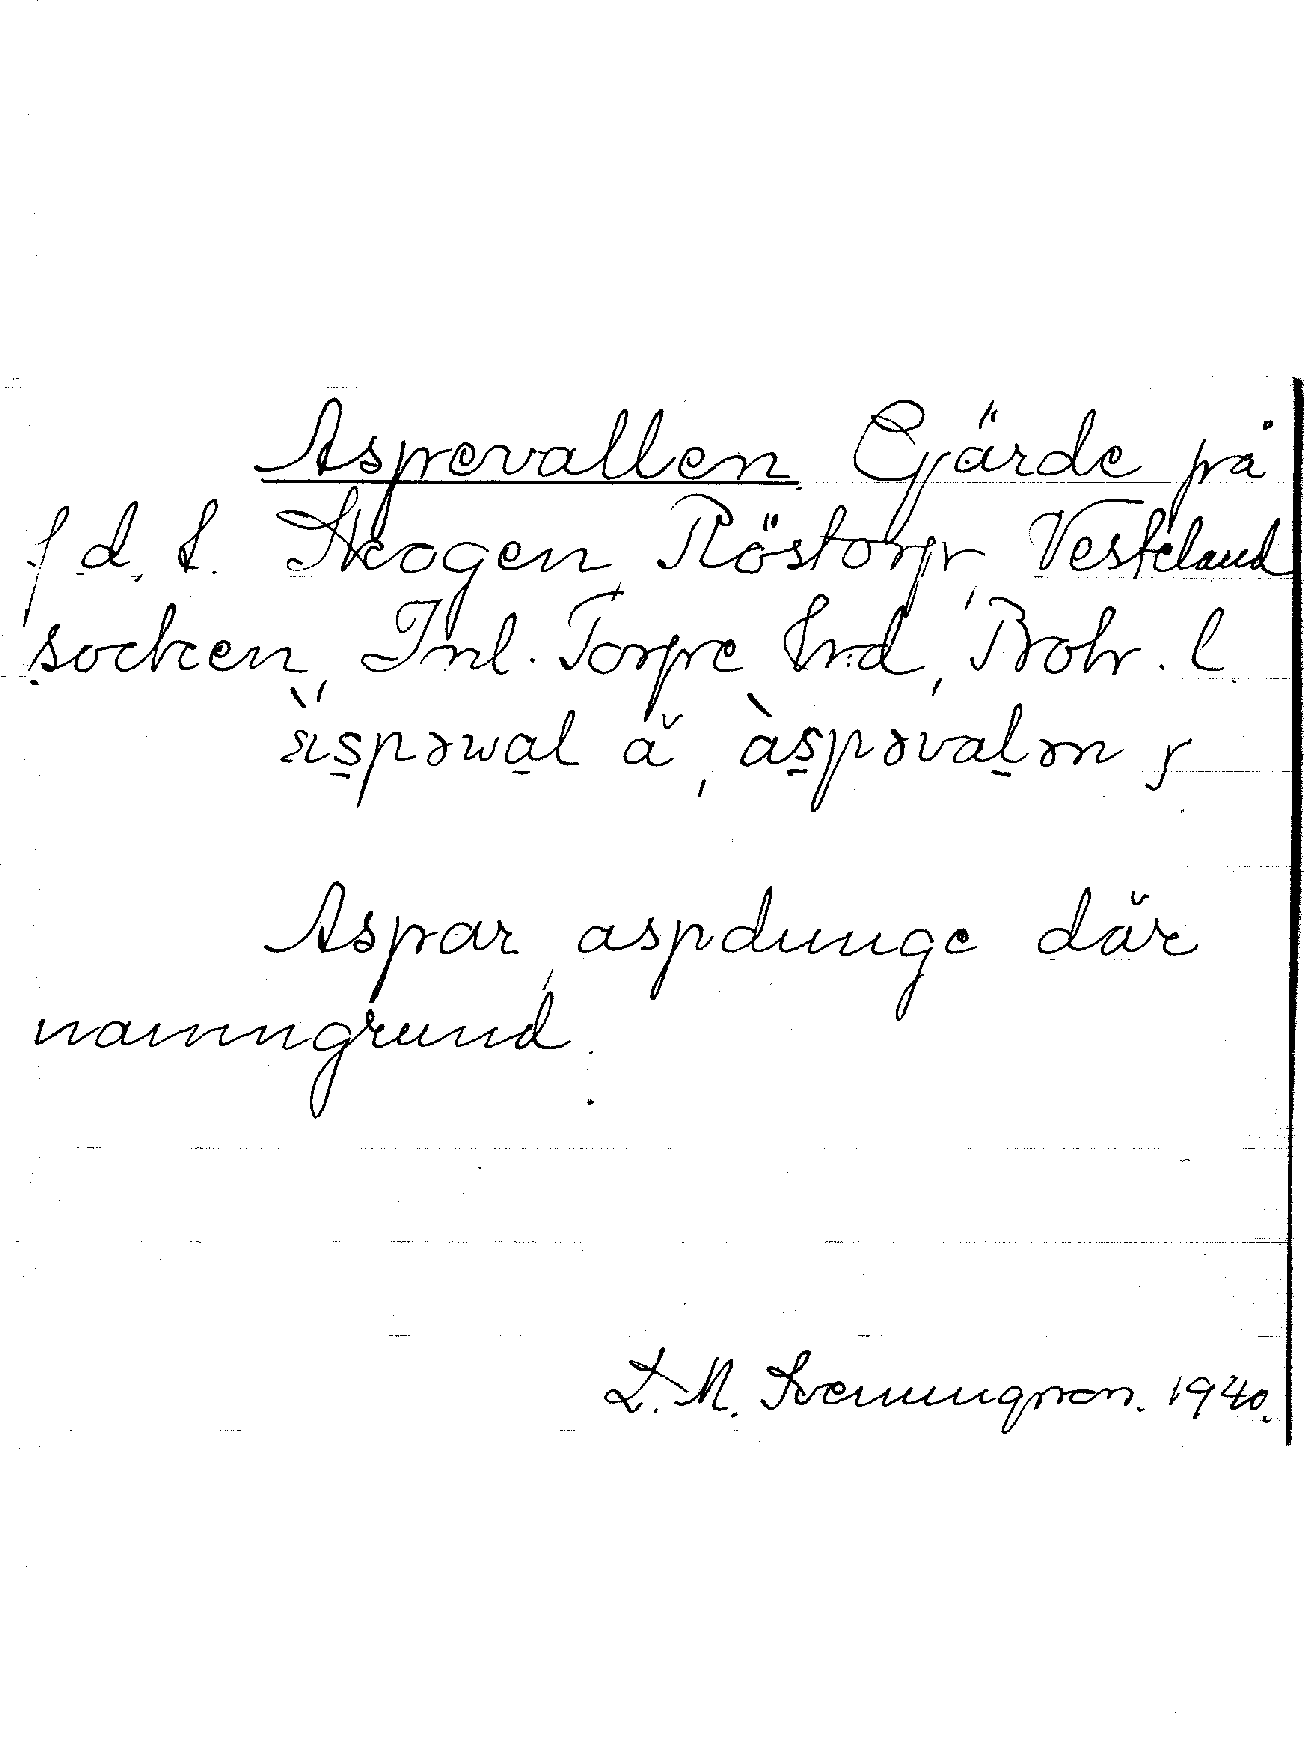 Aspevallen. Gärde på
f. d. t. Skogen, Röstorp, Vesteland
socken, Inl. Torpe hrd, Boh. l.
àspəwal ă, àspəvalən ʃ
Aspar, aspdunge där
namngrund.
L. M. Svenungson. 1940.